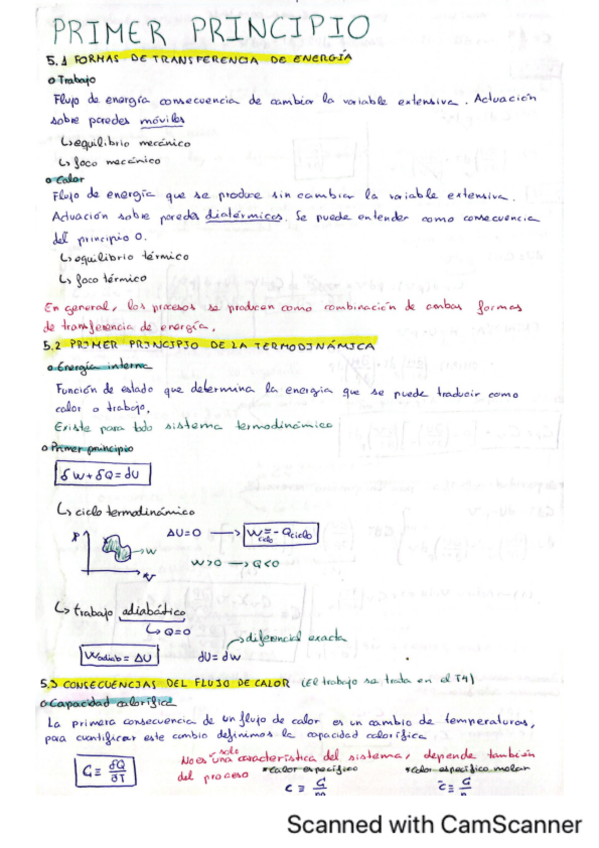 PRIMER PRINCIPIO
5.1 FORMAS DE TRANSFERENCIA DE ENERGÍA
o Trabajo
Flujo de energía consecuencia de cambiar la variable extensiva. Actuación
sobre paredes móviles
↳ equilibrio mecánico
↳ foco mecánico
o Calor
Flujo de energía que se produce sin cambiar la variable extensiva.
Actuación sobre paredes diatérmicas. Se puede entender como consecuencia
del principio 0.
↳ equilibrio térmico
↳ foco térmico
En general, los procesos se producen como combinación de ambas formas
de transferencia de energía.
5.2 PRIMER PRINCIPIO DE LA TERMODINÁMICA
o Energía interna
Función de estado que determina la energía que se puede traducir como
calor o trabajo.
Existe para todo sistema termodinámico
o Primer principio
δW + δQ = dU
↳ ciclo termodinámico
P
ΔU=0 → W ciclo = - Q ciclo
→ W
W>0 → Q<0
↳ trabajo adiabático
↳ Q=0
→ diferencial exacta
Wadiab = ΔU dU = dW
5.3 CONSECUENCIAS DEL FLUJO DE CALOR (el trabajo se trata en el T4)
o Capacidad calorífica
La primera consecuencia de un flujo de calor es un cambio de temperaturas,
para cuantificar este cambio definimos la capacidad calorífica.
C ≡ δQ/∂T
No es solo una característica del sistema, depende también
del proceso
• calor específico • calor específico molar
Scanned with CamScanner